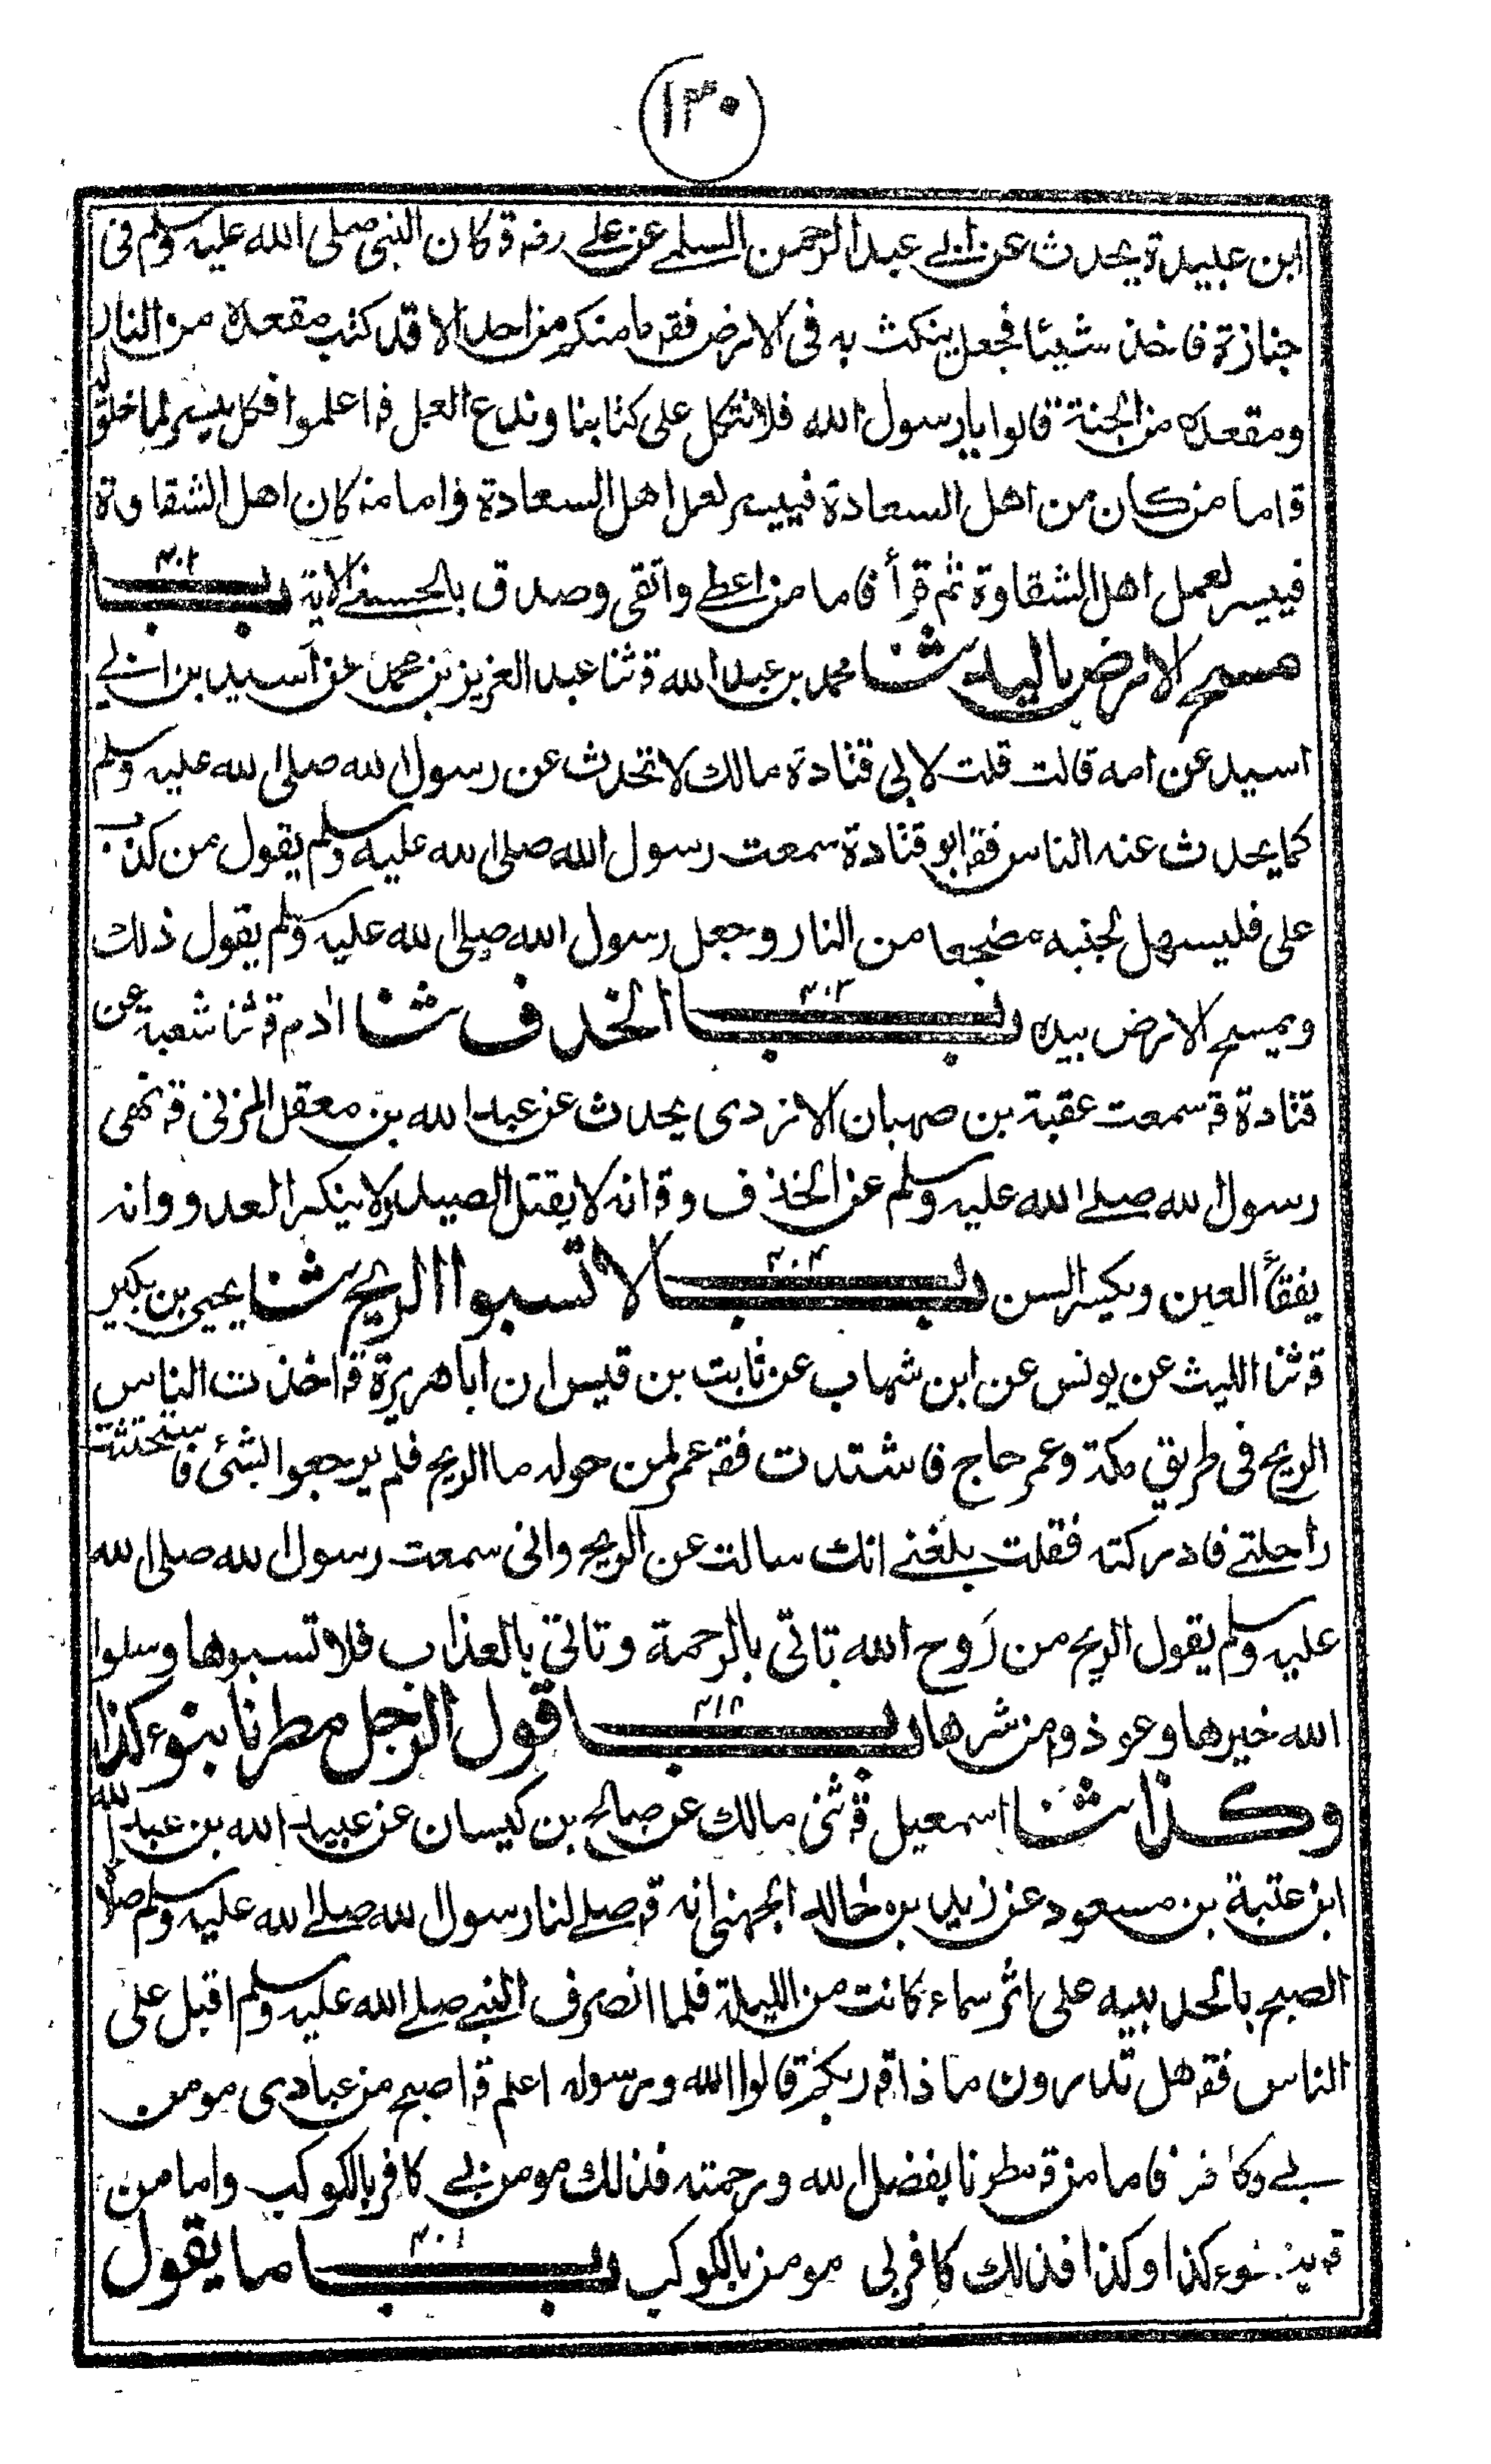 ١٣٠
ابن عبيدة يحدث عن ابي عبد الرحمن السلمي عن علي رضه قه كان النبي صلى الله عليه وسلم فى
جنازة فاخذ شيئا فجعل ينكث به فى الارض فقه ما منكم من احد الا قد كتب مقعده من النار
ومقعده من الجنة قالوا يا رسول الله فلا نتكل على كتابنا وندع العمل قه اعملوا فكل ميسر لما خلق له
قاما من كان من اهل السعادة فييسر لعمل اهل السعادة واما من كان اهل الشقاوة
فييسر لعمل اهل الشقاوة ثم قرأ فاما من اعطى واتقى وصدق بالحسنى الاية باب ٣٠٢
مسح الارض باليد ثنا محمد بن عبد الله قه ثنا عبد العزيز بن محمد عن أسيد بن ابي
اسيد عن امه قالت قلت لابى قتادة مالك لا تحدث عن رسول الله صلى الله عليه وسلم
كما يحدث عنه الناس فقه ابو قتادة سمعت رسول الله صلى الله عليه وسلم يقول من كذب
على فليسهل لجنبه مضجعا من النار وجعل رسول الله صلى الله عليه وسلم يقول ذلك
ويمسح الارض بيده باب ٣٠٣ الخذف ثنا ادم قه ثنا شعبة عن
قتادة قه سمعت عقبة بن صهبان الازدى يحدث عن عبد الله بن معقل المزنى قه نهى
رسول الله صلى الله عليه وسلم عن الخذف وقه انه لا يقتل الصيد ولا ينكى العدو وانه
يفقأ العين ويكسر السن باب ٣٠٤ لا تسبوا الريح ثنا يحيى بن بكير
قه ثنا الليث عن يونس عن ابن شهاب عن ثابت بن قيس ان ابا هريرة قه اخذت الناس
الريح فى طريق مكة وعمر حاج فاشتدت فقه عمر لمن حوله ما الريح فلم يرجعوا بشئ فاستحثثت
راحلتى فادركته فقلت بلغنى انك سالت عن الريح وانى سمعت رسول الله صلى الله
عليه وسلم يقول الريح من رَوح الله تاتى بالرحمة وتاتى بالعذاب فلا تسبوها وسلوا
الله خيرها وعوذوا من شرها باب قول الرجل مطرنا بنوء كذا
وكذا ثنا اسمعيل قه ثنى مالك عن صالح بن كيسان عن عبيد الله بن عبد الله
ابن عتبة بن مسعود عن زيد بن خالد الجهنى انه قه صلى لنا رسول الله صلى الله عليه وسلم صلاة
الصبح بالحديبيه على اثر سماء كانت من الليلة فلما انصرف النبى صلى الله عليه وسلم اقبل على
الناس فقه هل تدرون ماذا قه ربكم قالوا الله ورسوله اعلم قه اصبح من عبادى مومن
بي وكافر فاما من قه مطرنا بفضل الله ورحمته فذلك مومن بي كافر بالكوكب واما من
قه بنوء كذا وكذا فذلك كافر بى مومن بالكوكب باب ما يقول